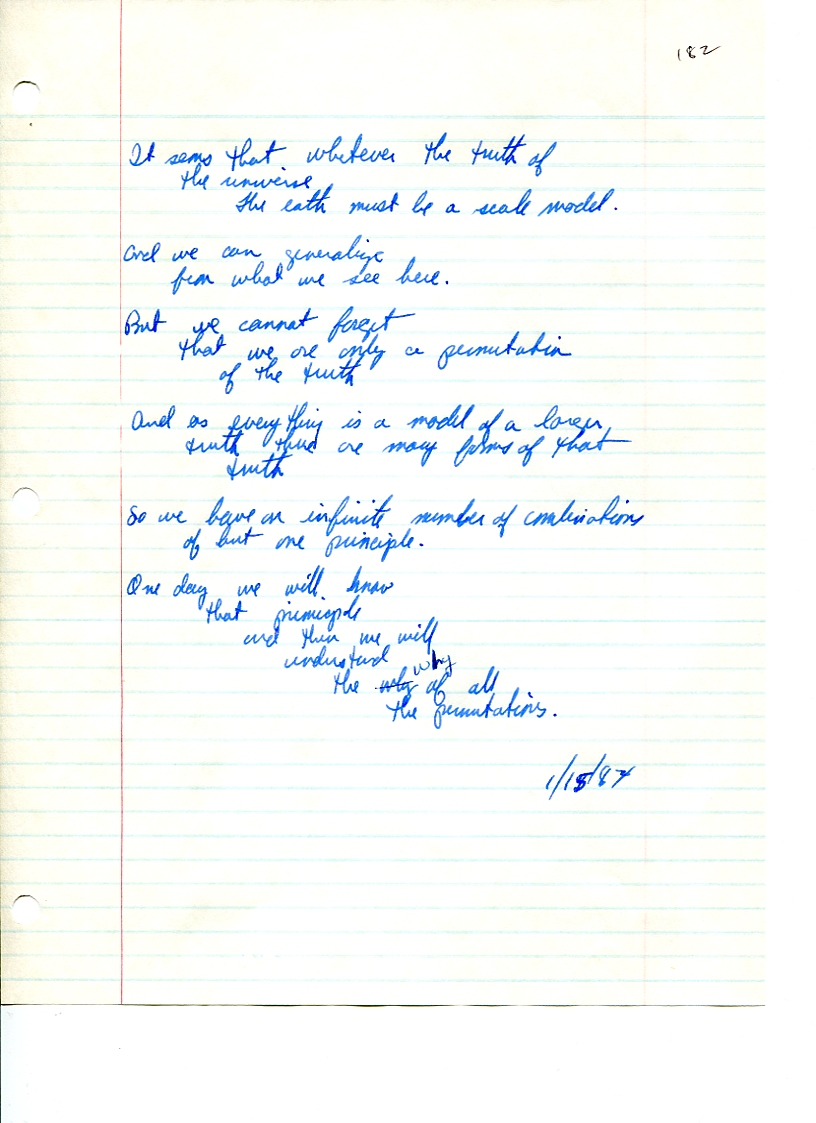 182
It seems that whatever the truth of
the universe
the earth must be a scale model.
And we can generalize
from what we see here.
But we cannot forget
that we are only a permutation
of the truth
And as everything is a model of a larger
truth there are many forms of that
truth
So we have an infinite number of combinations
of but one principle.
One day we will know
that principle
and then we will
understand
the why of all
the permutations.
1/15/84